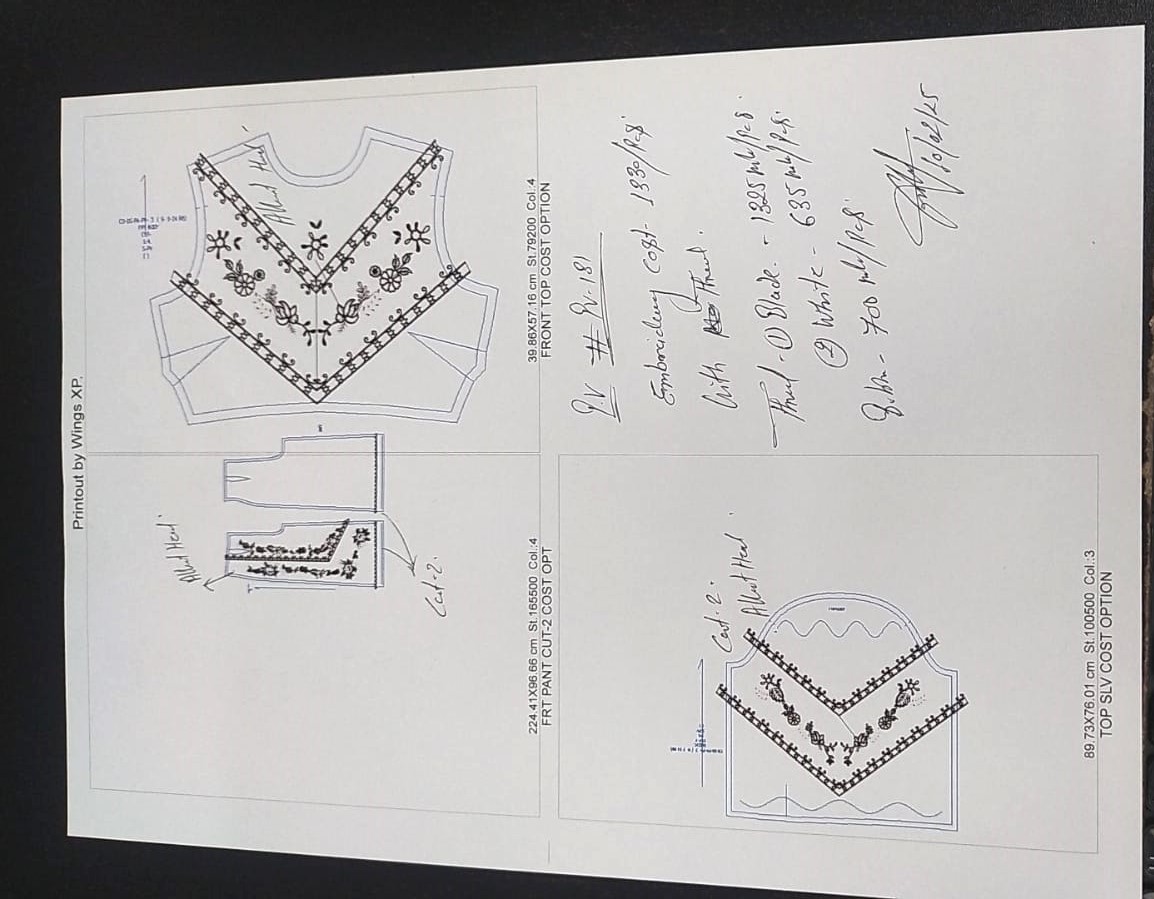 Printout by Wings XP.
39.86X57.16 cm St.:79200 Col.:4
FRONT TOP COST OPTION
224.41X96.66 cm St.:165500 Col.:4
FRT PANT CUT-2 COST OPT
Cut-2.
89.73X76.01 cm St.:100500 Col.:3
TOP SLV COST OPTION
Cut-2.
Embroidery cost- 1330/Pcs.
with Thread.
Thread - ① Black. - 1325 mtr/Pcs.
② White - 635 mtr/Pcs.
Bobbin - 700 mtr/Pcs.
10/02/25